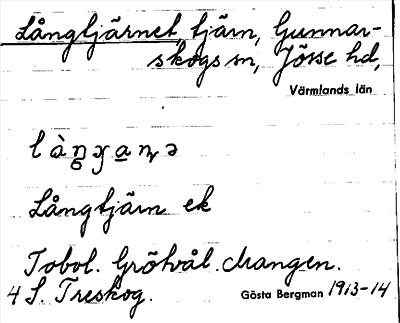 Långtjärnet, tjärn, Gunnar-
skogs sn, Jösse hd,
Värmlands län
Långtjärn ek
Tobol. Grötvål. Mangen.
4 S. Treskog. Gösta Bergman 1913-14